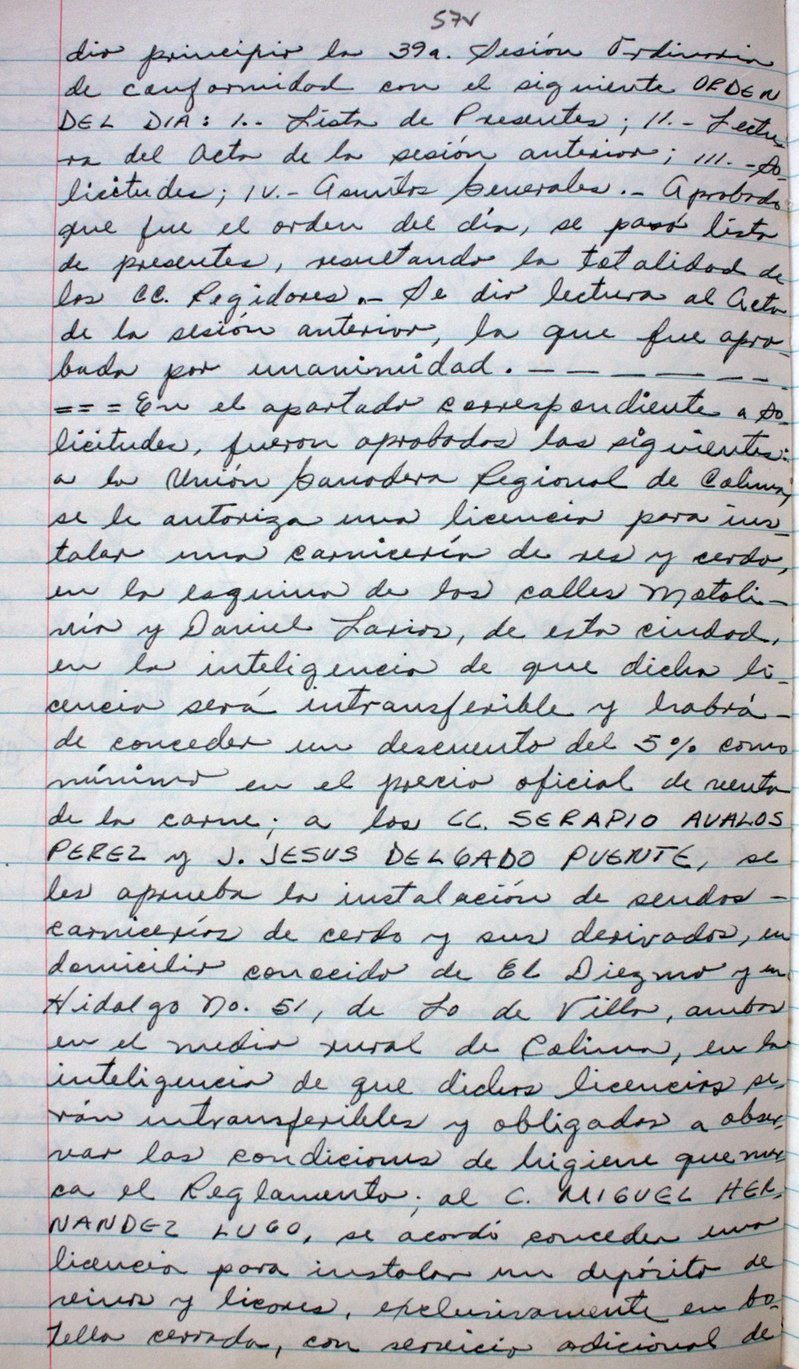 57v
dio principio la 39a. Sesión Ordinaria
de conformidad con el siguiente ORDEN
DEL DIA: I.- Lista de Presentes; II.- Lectu-
ra del Acta de la sesión anterior; III.- So-
licitudes; IV.- Asuntos Generales.- Aprobado
que fue el orden del día, se pasó lista
de presentes, resultando la totalidad de
los CC. Regidores.- Se dio lectura al Acta
de la sesión anterior, la que fue apro-
bada por unanimidad. - - - - - - -
=== En el apartado correspondiente a So-
licitudes, fueron aprobados las siguientes:
a la Unión Ganadera Regional de Colima,
se le autoriza una licencia para ins-
talar una carnicería de res y cerdo,
en la esquina de las calles Motoli-
nía y Daniel Larios, de esta ciudad,
en la inteligencia de que dicha li-
cencia será intransferible y habrá-
de conceder un descuento del 5% como
mínimo en el precio oficial de venta
de la carne; a los CC. SERAPIO AVALOS
PEREZ y J. JESUS DELGADO PUENTE, se
les aprueba la instalación de sendas-
carnicerías de cerdo y sus derivados, en
domicilio conocido de El Diezmo y en
Hidalgo No. 51, de Lo de Villa, ambas
en el medio rural de Colima, en la
inteligencia de que dichas licencias se-
rán intransferibles y obligados a obser-
var las condiciones de higiene que mar-
ca el Reglamento; al C. MIGUEL HER-
NANDEZ LUGO, se acordó conceder una
licencia para instalar un depósito de
vinos y licores, exclusivamente en bo-
tella cerrada, con servicio adicional de